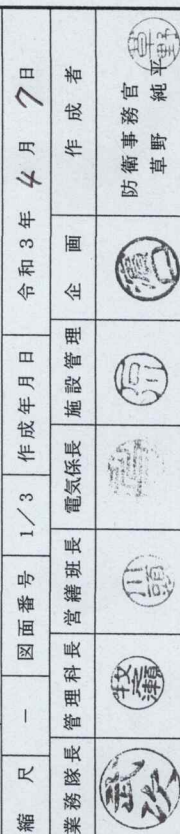 縮尺 － 図面番号 1/3 作成年月日 令和3年4月7日
業務隊長 管理科長 営繕班長 電気係長 施設管理 企画 作成者
牧瀬 川頭 濵口 草野
防衛事務官
草野 純平